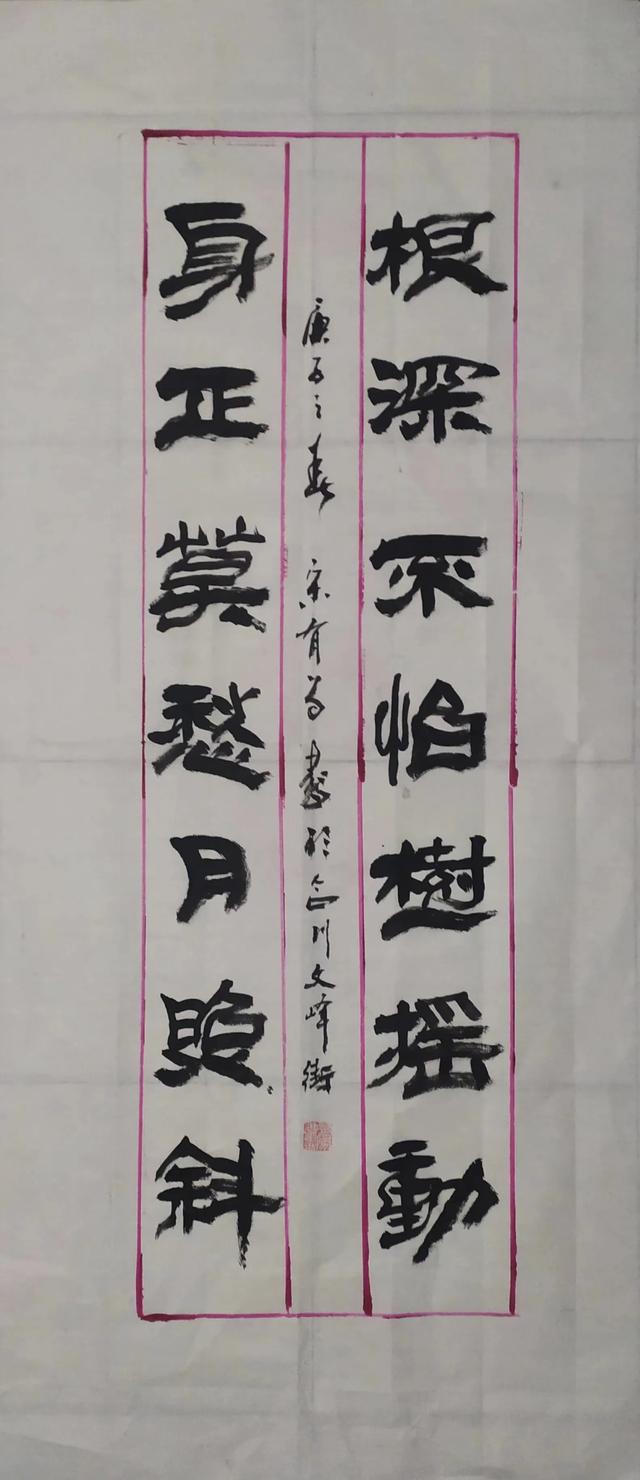 根深不怕樹摇動
庚子之春 宗有為書於合川文峰街
身正莫愁月照斜